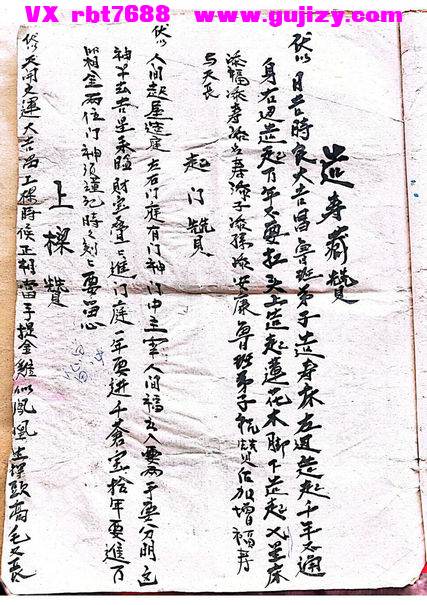 VX rbt7688 www.gujizy.com
造寿藏赞
伏以 日吉時良大吉昌魯班弟子造寿床左边造起千年不通
身右边造起万年不要扛头上造起莲花木脚下造起七星床
添福添寿添 寿添子添孫添安康魯班弟子 赞后加增福寿
与天長
起门赞
伏以 人间起屋造庭 左右门庭有门神门中主宰人间福出入要 分明
神 去吉星来臨財宝叠叠進门庭一年要进千倉宝拾年要進万
金两位门神 謹記時時刻刻要留心
上樑赞
伏以天開文運大吉昌上樑時候正相當手提金雞似鳳凰生得頭高毛又長